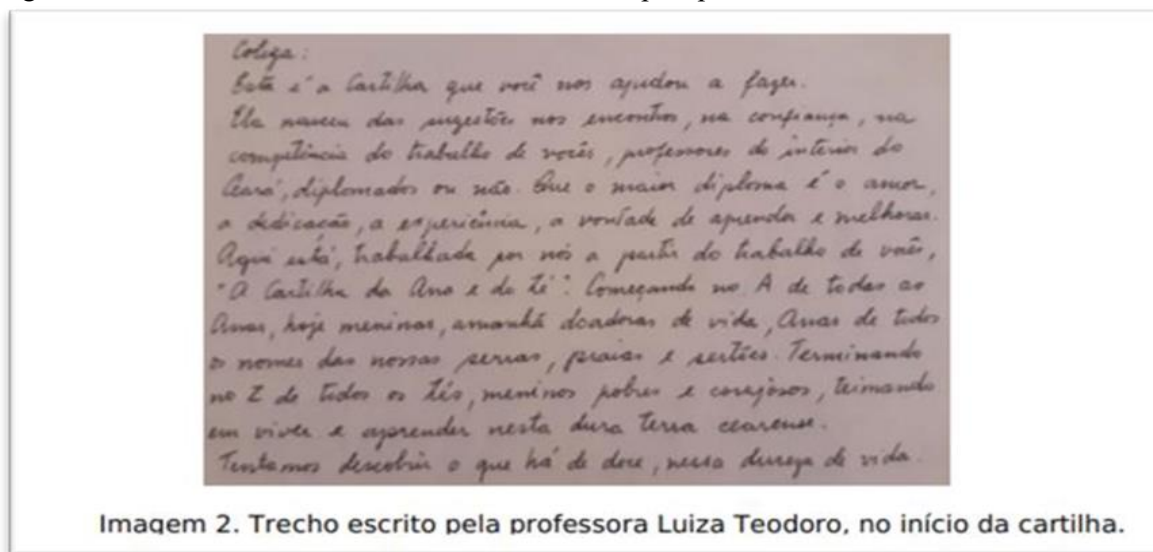 Colega:
Esta é a Cartilha que você nos ajudou a fazer.
Ela nasceu das sugestões nos encontros, na confiança, na
competência do trabalho de vocês, professores do interior do
Ceará, diplomados ou não. Que o maior diploma é o amor,
a dedicação, a experiência, a vontade de aprender e melhorar.
Aqui está, trabalhada por nós a partir do trabalho de vocês,
"A Cartilha da Ana e do Zé". Começando no A de todas as
Anas, hoje meninas, amanhã doadoras de vida, Anas de todos
os nomes das nossas serras, praias e sertões. Terminando
no Z de todos os Zés, meninos pobres e corajosos, teimando
em viver e aprender nesta dura terra cearense.
Tentamos descobrir o que há de doce, nessa dureza de vida.
Imagem 2. Trecho escrito pela professora Luiza Teodoro, no início da cartilha.